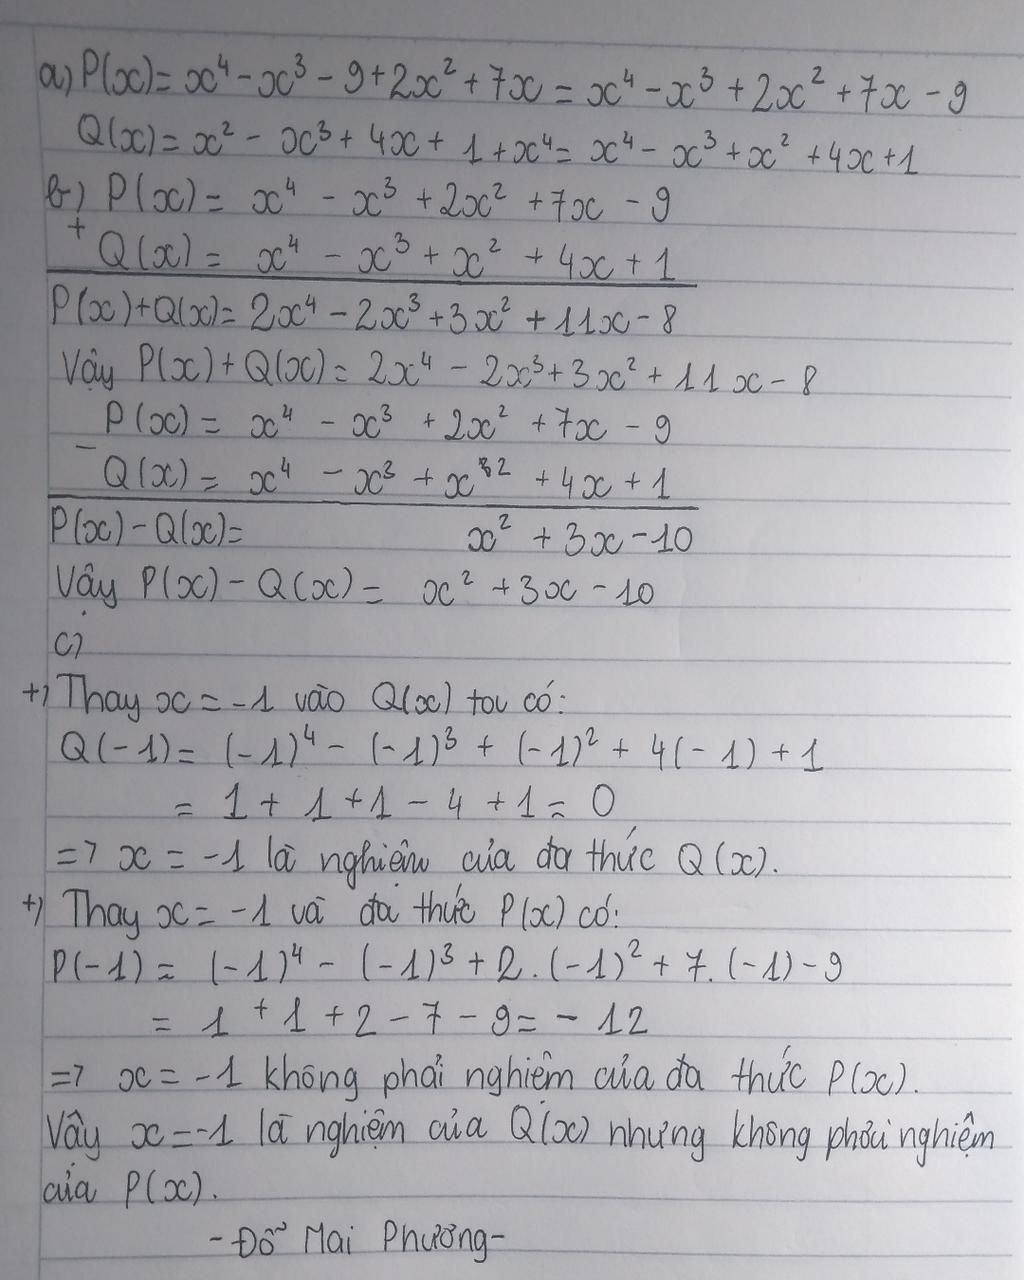 a) P(x) = x⁴ - x³ - 9 + 2x² + 7x = x⁴ - x³ + 2x² + 7x - 9
Q(x) = x² - x³ + 4x + 1 + x⁴ = x⁴ - x³ + x² + 4x + 1
b) P(x) = x⁴ - x³ + 2x² + 7x - 9
+ Q(x) = x⁴ - x³ + x² + 4x + 1
P(x) + Q(x) = 2x⁴ - 2x³ + 3x² + 11x - 8
Vậy P(x) + Q(x) = 2x⁴ - 2x³ + 3x² + 11x - 8
P(x) = x⁴ - x³ + 2x² + 7x - 9
- Q(x) = x⁴ - x³ + x² + 4x + 1
P(x) - Q(x) = x² + 3x - 10
Vậy P(x) - Q(x) = x² + 3x - 10
c)
+) Thay x = -1 vào Q(x) ta có:
Q(-1) = (-1)⁴ - (-1)³ + (-1)² + 4(-1) + 1
= 1 + 1 + 1 - 4 + 1 = 0
=> x = -1 là nghiệm của đa thức Q(x).
+) Thay x = -1 và đa thức P(x) có:
P(-1) = (-1)⁴ - (-1)³ + 2.(-1)² + 7.(-1) - 9
= 1 + 1 + 2 - 7 - 9 = - 12
=> x = -1 không phải nghiệm của đa thức P(x).
Vậy x = -1 là nghiệm của Q(x) nhưng không phải nghiệm
của P(x).
- Đỗ Mai Phương -